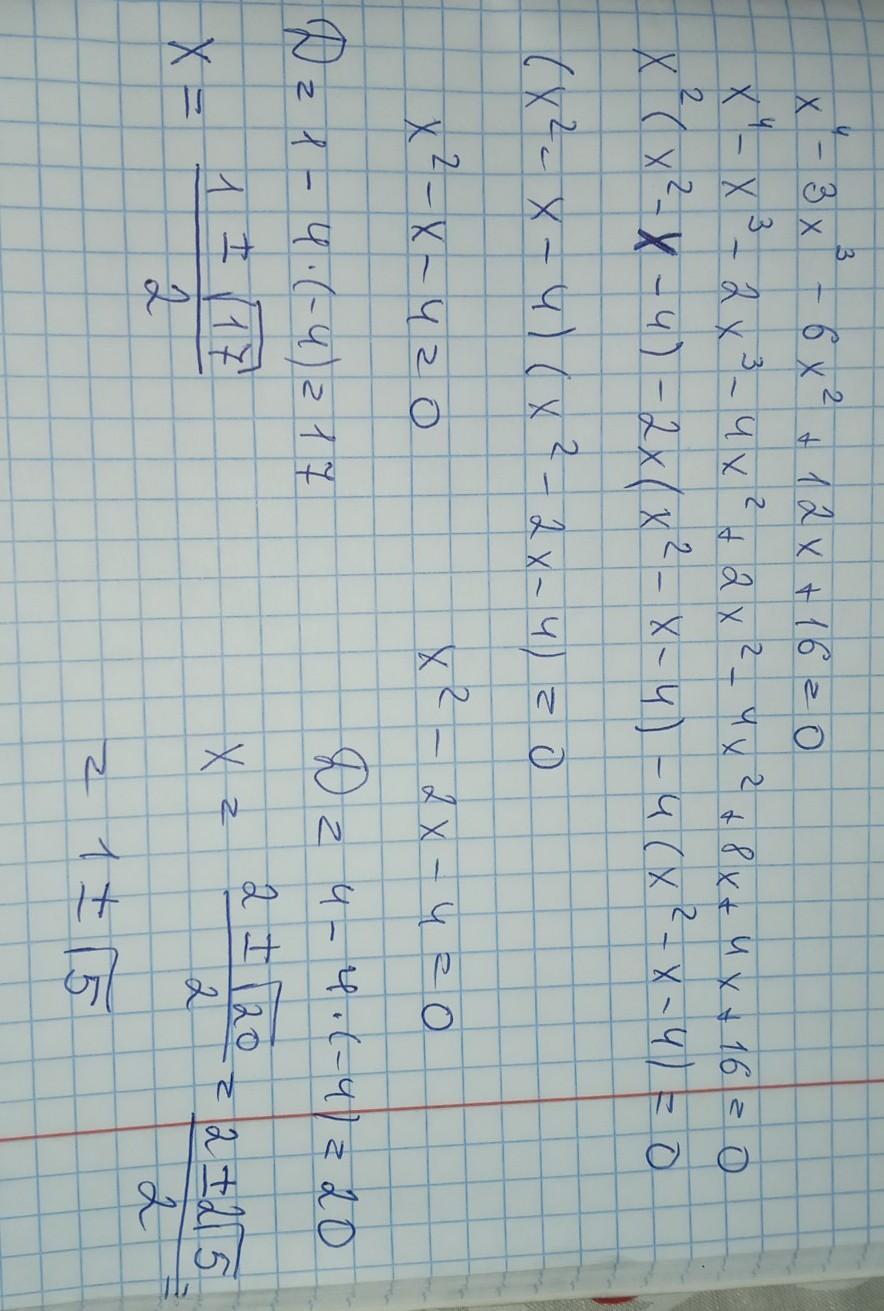 x⁴ - 3x³ - 6x² + 12x + 16 = 0
x⁴ - x³ - 2x³ - 4x² + 2x² - 4x² + 8x + 4x + 16 = 0
x²(x² - x - 4) - 2x(x² - x - 4) - 4(x² - x - 4) = 0
(x² - x - 4)(x² - 2x - 4) = 0
x² - x - 4 = 0
D = 1 - 4·(-4) = 17
x = (1 ± √17)/2
x² - 2x - 4 = 0
D = 4 - 4·(-4) = 20
x = (2 ± √20)/2 = (2 ± 2√5)/2 =
= 1 ± √5